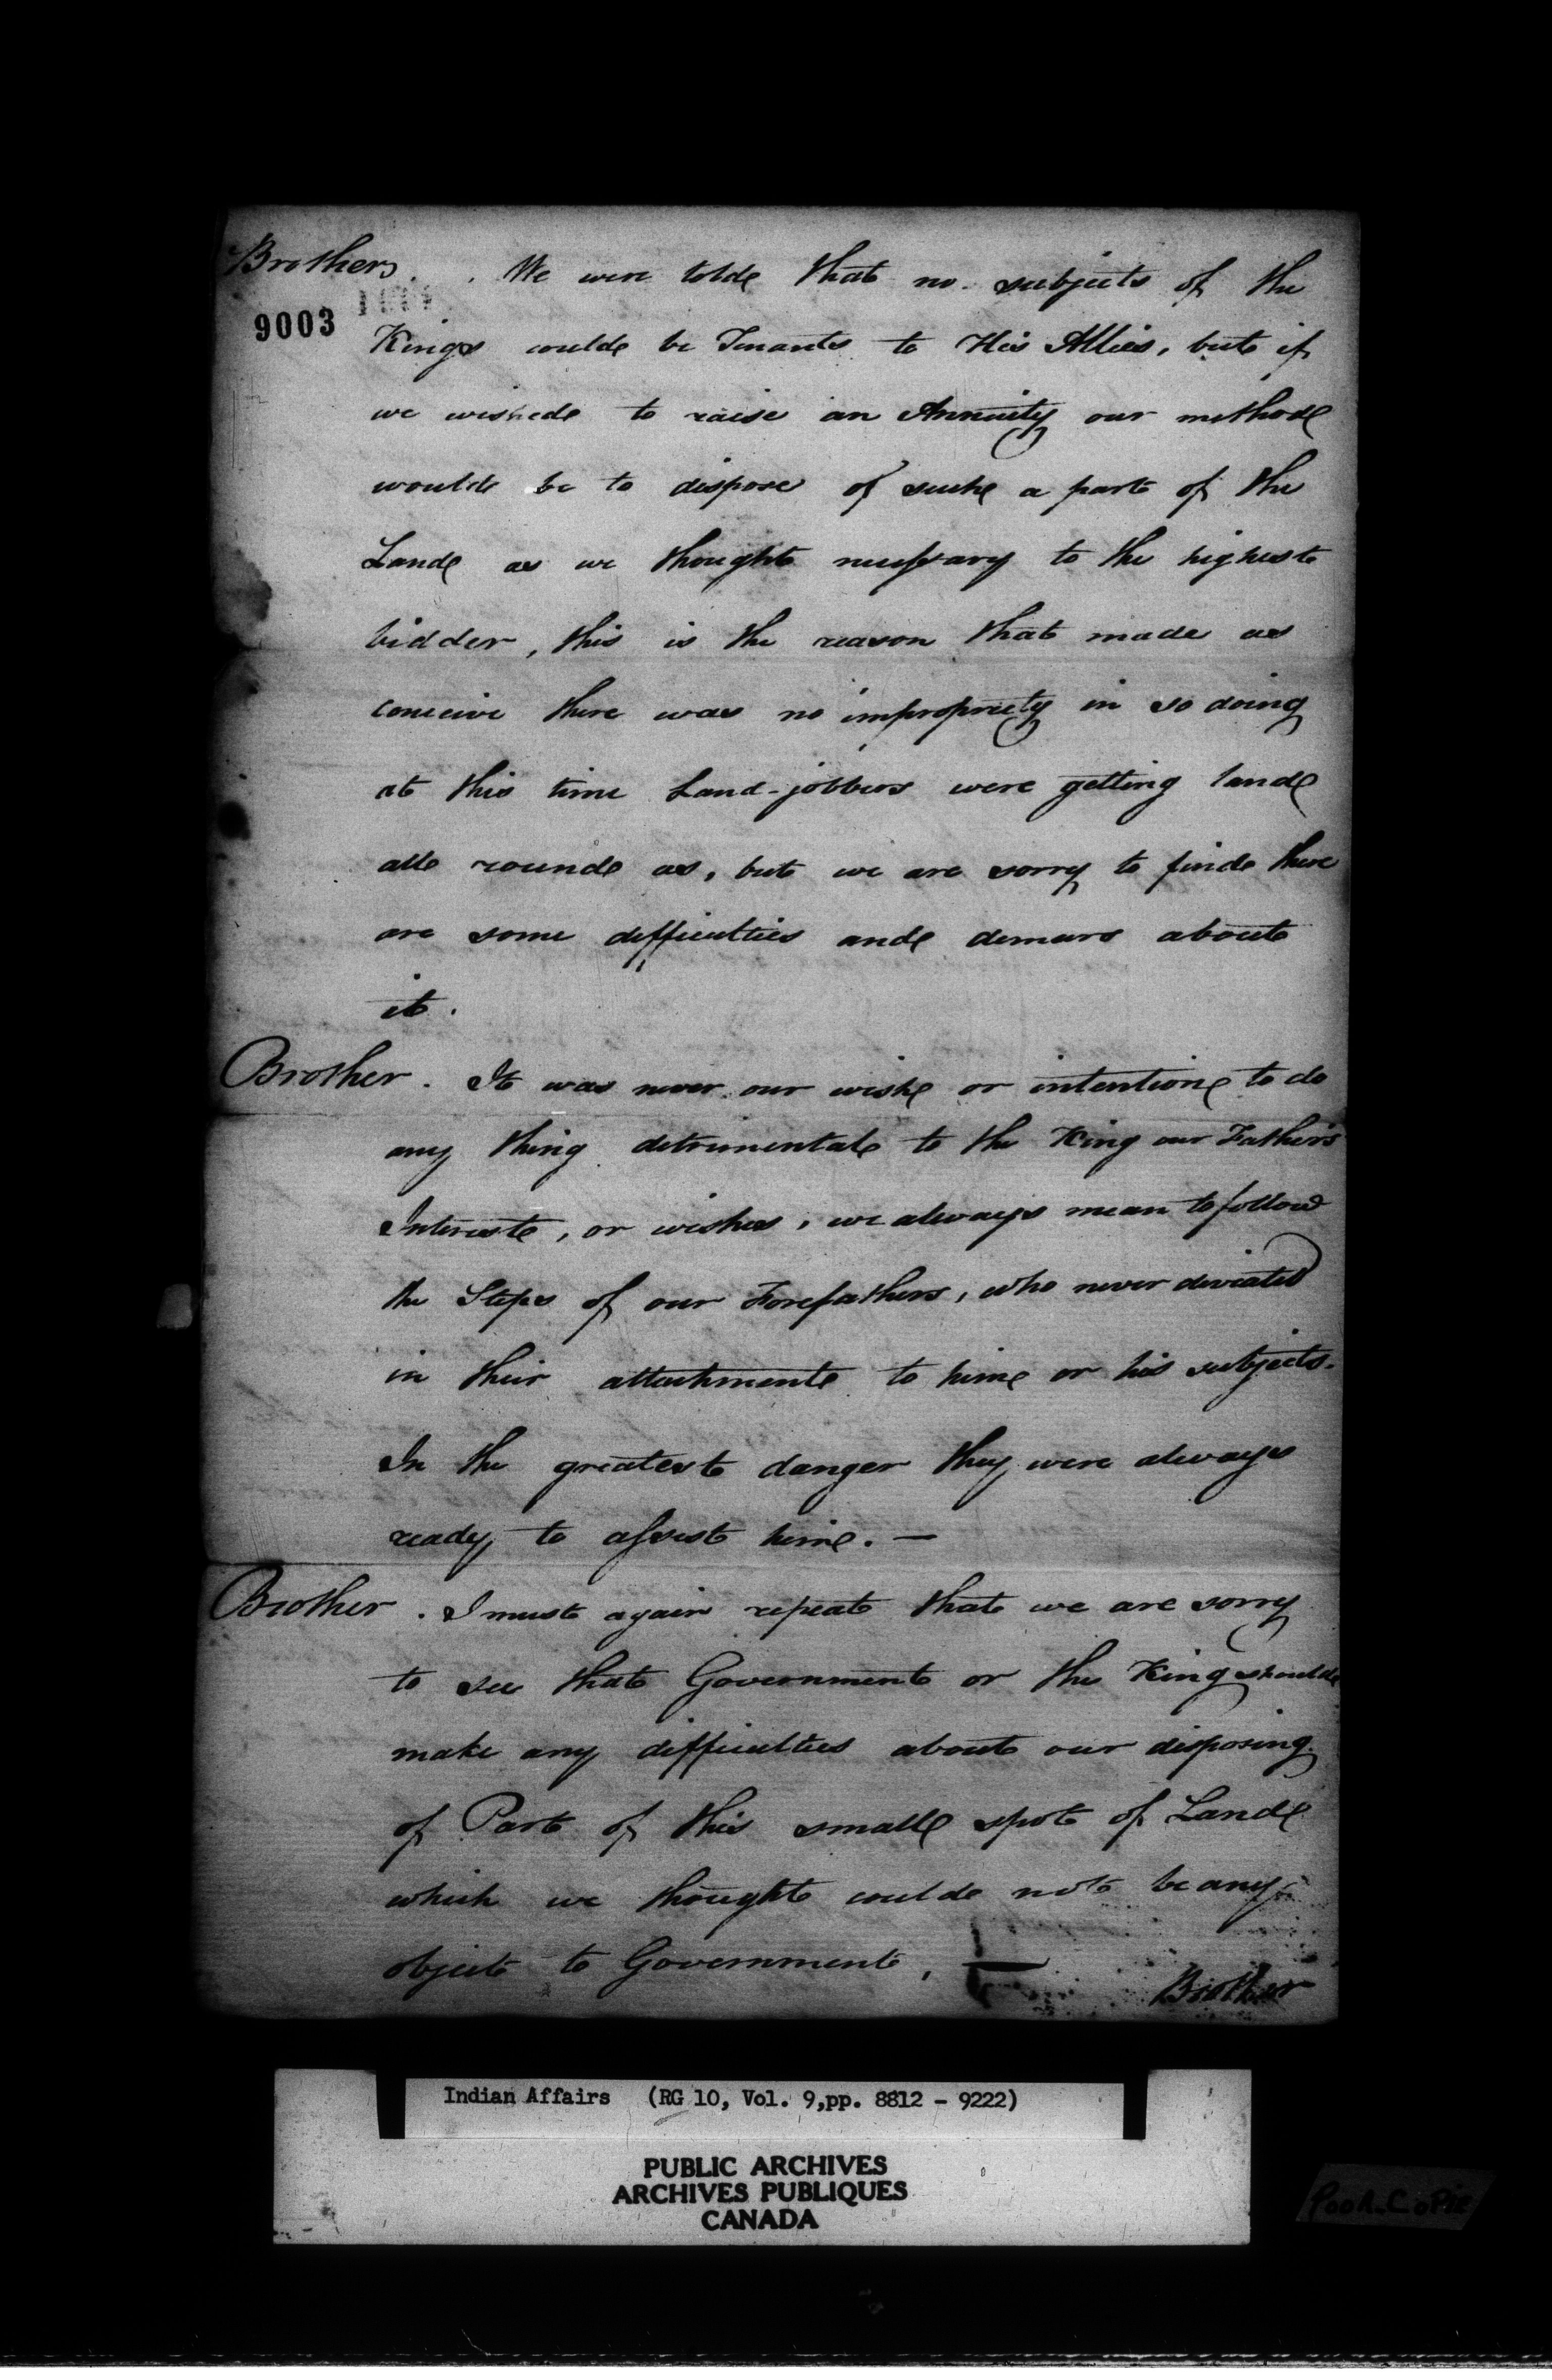 Brothers. We were told that no subjects of the
9003
Kings could be Tenants to His Allies, but if
we wished to raise an Annuity our method
would be to dispose of such a part of the
Land as we thought necessary to the highest
bidder, this is the reason that made us
conceive there was no impropriety in so doing
at this time Land-jobbers were getting land
all round us, but we are sorry to find there
are some difficulties and demurs about
it.
Brother. It was never our wish or intention to do
any thing detrimental to the King our Father's
Interest, or wishes, we always mean to follow
the Steps of our Forefathers, who never deviated
in their attachment to him or his subjects.
In the greatest danger they were always
ready to assist him. —
Brother. I must again repeat that we are sorry
to see that Government or the King should
make any difficulties about our disposing
of Part of this small spot of Land
which we thought could not be any
object to Government, —
Brother
Indian Affairs (RG 10, Vol. 9,pp. 8812 - 9222)
PUBLIC ARCHIVES
ARCHIVES PUBLIQUES
CANADA
Poor Copie